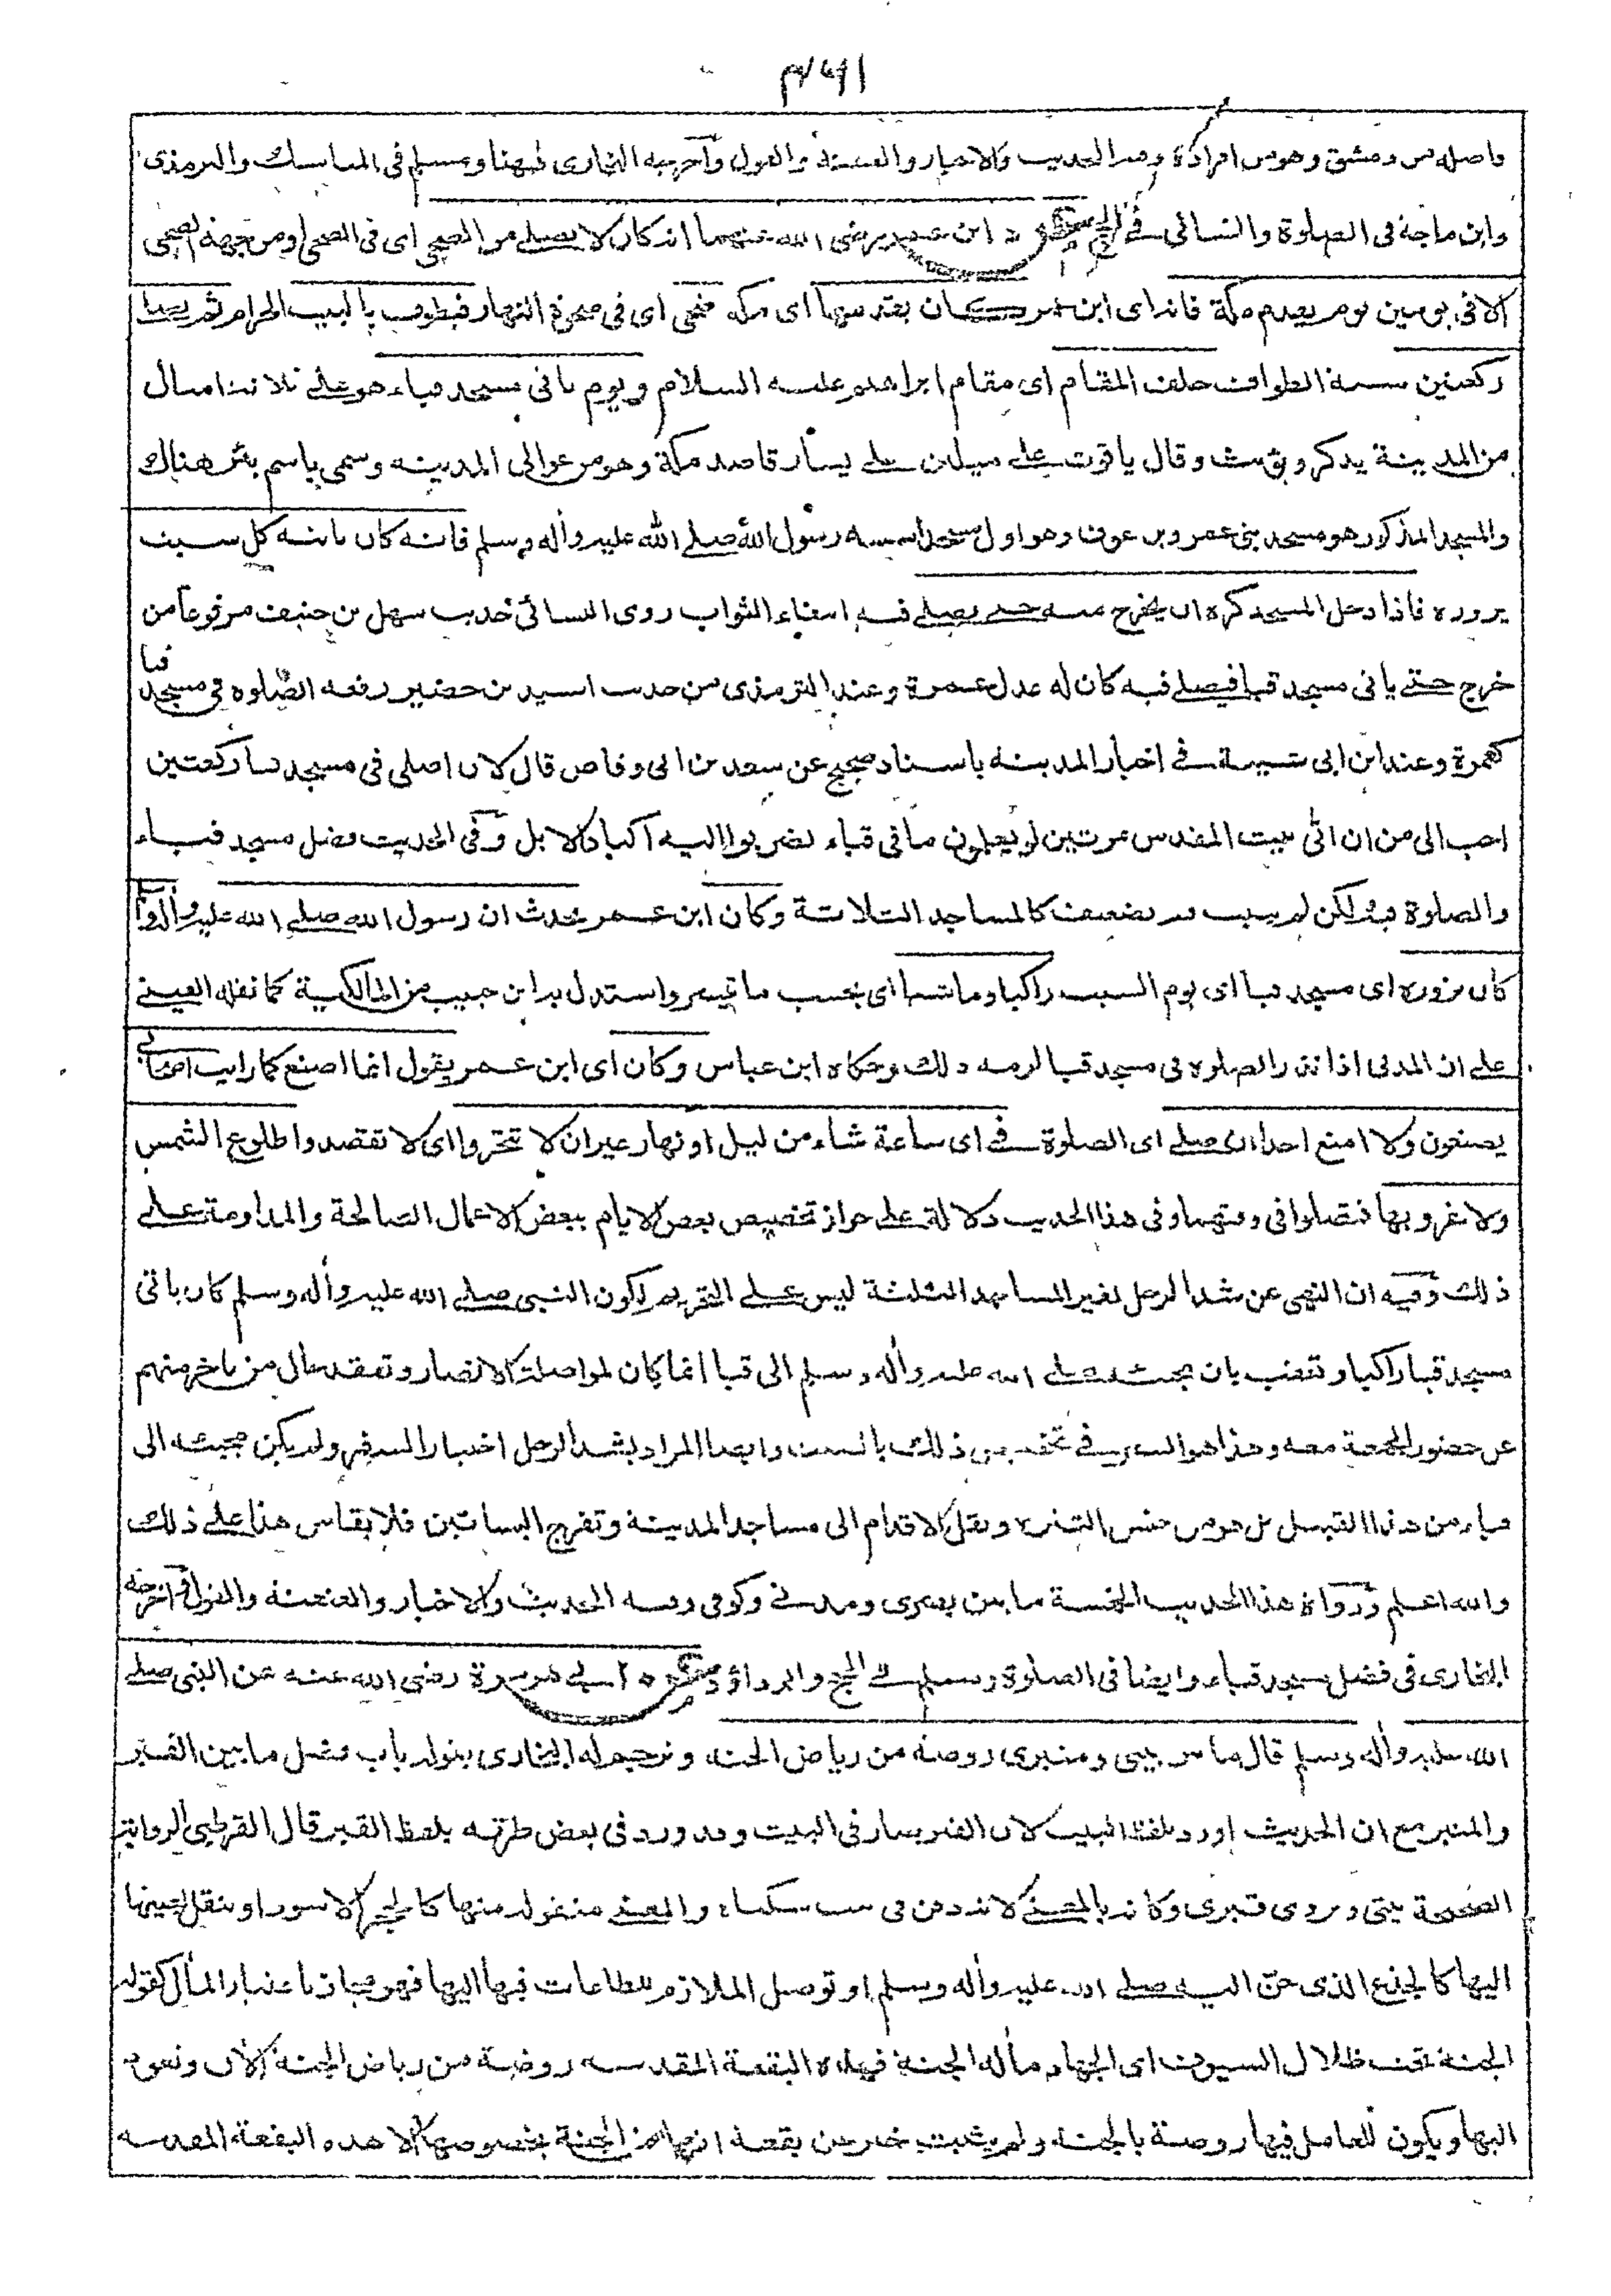 واصله من دمشق وهو من افراده وفيه التحديث والاخبار والعنعنة والقول وأخرجه البخارى ههنا ومسلم فى المناسك والترمذى
وابن ماجة فى الصلوة والنسائى فى الحج ابن عمر رضى الله عنهما انه كان لا يصلى من الضحى اى فى الضحى او من جهة الضحى
الا فى يومين يوم يقدم مكة فانه اى ابن عمر كان يقدمها اى مكه ضحى اى فى ضحوة النهار فيطوف بالبيت الحرام ثم يصلى
ركعتين سنة الطواف خلف المقام اى مقام ابراهيم عليه السلام ويوم ياتى مسجد قباء هو على ثلاثة اميال
من المدينة يذكر ويؤنث وقال ياقوت على ميلين على يسار قاصد مكة وهو من عوالى المدينه وسمى باسم بئر هناك
والمسجد المذكور هو مسجد بنى عمرو بن عوف وهو اول مسجد اسسه رسول الله صلى الله عليه وأله وسلم فانه كان ياتيه كل سبت
يزوره فاذا دخل المسجد كره ان يخرج منه حتى يصلى فيه ابتغاء الثواب روى النسائى حديث سهل بن حنيف مرفوعا من
خرج حتى ياتى مسجد قبا فيصلى فيه كان له عدل عمرة وعند الترمذى من حديث اسيد بن حضير رفعه الصلوة فى مسجد قبا
كعمرة وعند ابن ابى شيبة فى اخبار المدينه باسناد صحيح عن سعد بن ابى وقاص قال لان اصلى فى مسجد قبا ركعتين
احب الى من ان اتى بيت المقدس مرتين لو يعلمون ما فى قباء لضربوا اليه أكباد الابل وفى الحديث فضل مسجد قباء
والصلوة فيه لكن لم يثبت فيه تضعيف كالمساجد الثلاثة وكان ابن عمر يحدث ان رسول الله صلى الله عليه وأله وسلم
كان يزوره اى مسجد قبا اى يوم السبت راكبا وماشيا اى بحسب ما تيسر واستدل به ابن حبيب من المالكية كما نقله العينى
على ان المدنى اذا نذر الصلوة فى مسجد قبا لزمه ذلك وحكاه ابن عباس وكان اى ابن عمر يقول انما اصنع كما رايت اصحابى
يصنعون ولا امنع احدا ان صلى اى الصلوة فى اى ساعة شاء من ليل او نهار غير ان لا تتحروا اى لا تقصدوا طلوع الشمس
ولا غروبها فتصلوا فى وقتهما وفى هذا الحديث دلالة على جواز تخصيص بعض الايام ببعض الاعمال الصالحة والمداومة على
ذلك وفيه ان النهى عن شد الرحل لغير المساجد الثلثة ليس على التحريم لكون النبى صلى الله عليه وأله وسلم كان ياتى
مسجد قبا راكبا وتعقب بان مجيئه صلى الله عليه وأله وسلم الى قبا انما كان لمواصلة الانصار وتفقد حال من تاخر منهم
عن حضور الجمعة معه وهذا هو السر فى تخصيص ذلك بالسبت وايضا المراد بشد الرحل اختيار السفر ولم يكن مجيئه الى
قباء من هذا القبيل بل هو من جنس التنزه ونقل الاقدام الى مساجد المدينة وتفرج البساتين فلا يقاس هذا على ذلك
والله اعلم ورواة هذا الحديث الخمسة ما بين بصرى ومدنى وكوفى وفيه التحديث والاخبار والعنعنة والقول واخرجه
البخارى فى فضل مسجد قباء وايضا فى الصلوة ومسلم فى الحج وابو داؤد ابى هريرة رضى الله عنه عن النبى صلى
الله عليه وأله وسلم قال ما بين بيتى ومنبرى روضة من رياض الجنة وترجم له البخارى بقوله باب فضل ما بين القبر
والمنبر مع ان الحديث اورد بلفظ البيت لان القبر صار فى البيت وقد ورد فى بعض طرقه بلفظ القبر قال القرطبى الرواية
الصحيحة بيتى ويروى قبرى وكانه بالمعنى لانه دفن فى بيت سكناه والمعنى منقولة منها كالحجر الاسود او تنقل بعينها
اليها كالجذع الذى حن اليه صلى الله عليه وأله وسلم او توصل الملازم للطاعات فيها اليها فهو مجاز باعتبار المأل كقوله
الجنة تحت ظلال السيوف اى الجهاد مأله الجنة فهذه البقعة المقدسه روضة من رياض الجنة الأن وتعود
اليها ويكون للعامل فيها روضة بالجنة ولم يثبت خبر عن بقعة انها من الجنة بخصوصها الا هذه البقعة المقدسه